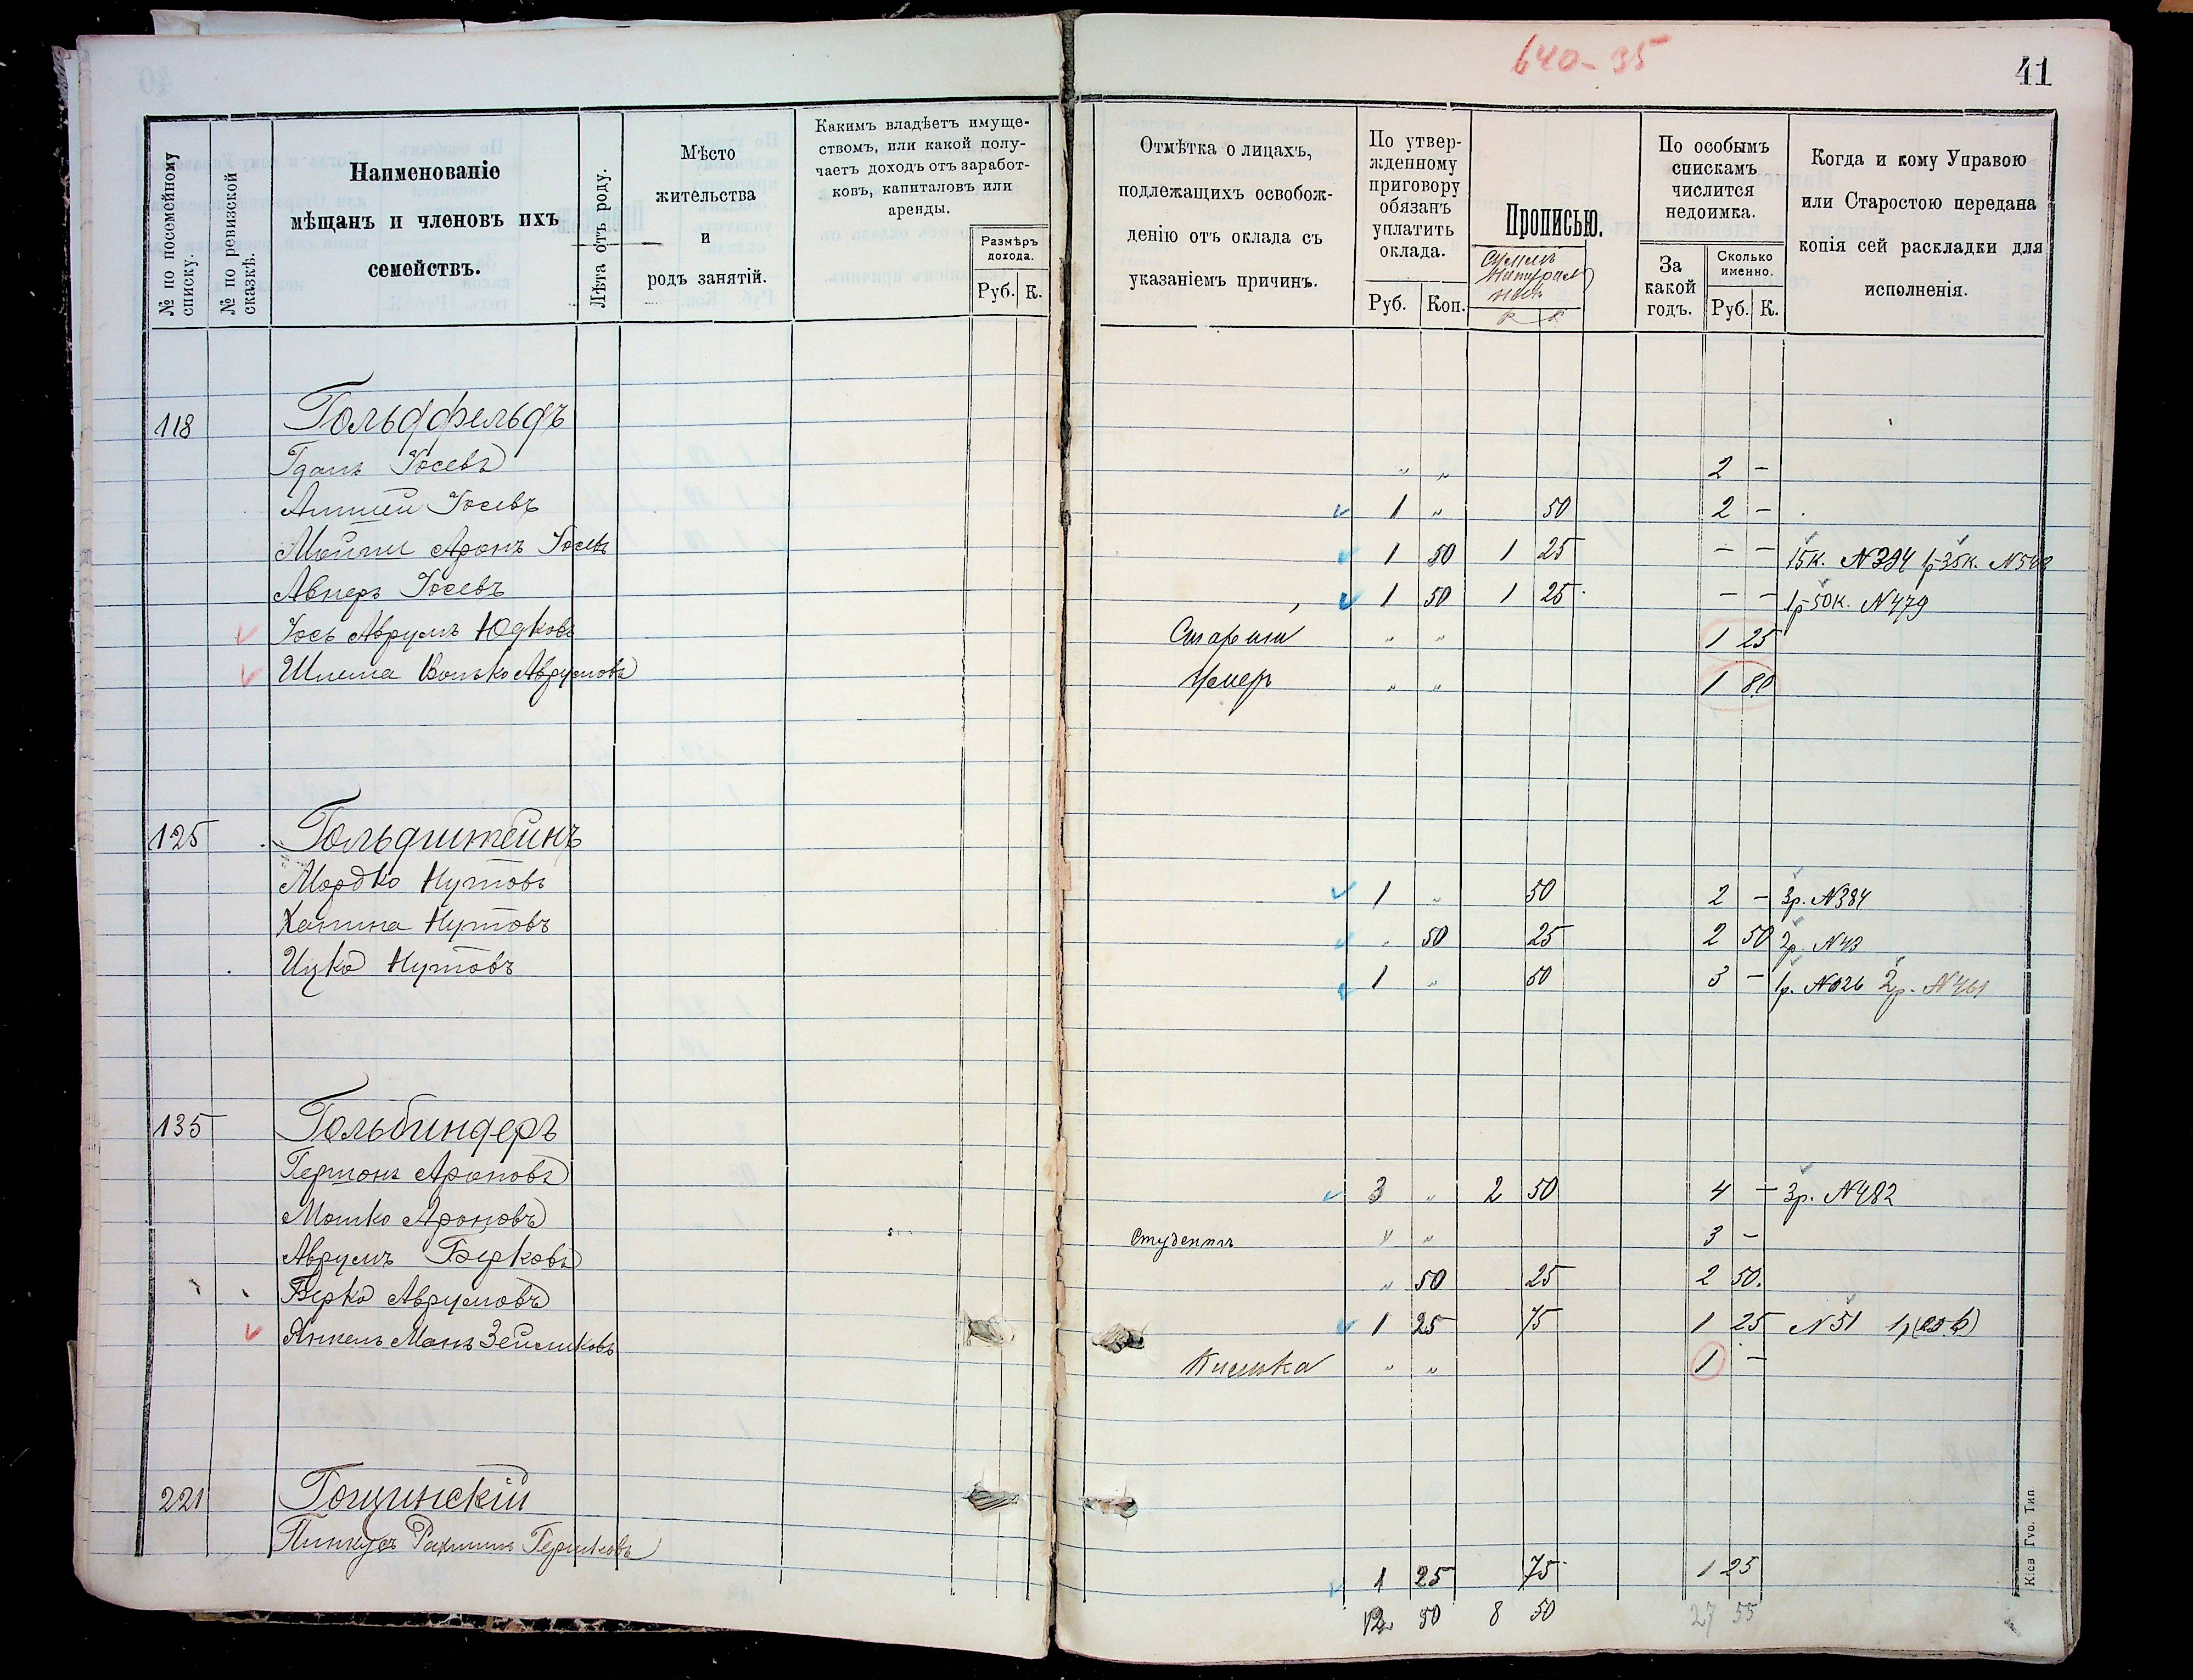 640-95
41
№ по посемейному списку.
№ по ревизской сказкѣ.
Наименованіе
мѣщанъ и членовъ ихъ
семействъ.
Лѣта отъ роду.
Мѣсто
жительства
и
родъ занятій.
Какимъ владѣетъ имуще-
ствомъ, или какой полу-
чаетъ доходъ отъ заработ-
ковъ, капиталовъ или
аренды.
Размѣръ
дохода.
Руб. К.
Отмѣтка о лицахъ,
подлежащихъ освобож-
денію отъ оклада съ
указаніемъ причинъ.
По утвер-
жденному
приговору
обязанъ
уплатить
оклада.
Руб. Коп.
Прописью.
По особымъ
спискамъ
числится
недоимка.
За
какой
годъ.
Сколько
именно.
Руб. К.
Когда и кому Управою
или Старостою передана
копія сей раскладки для
исполненія.
118 Гольдфельдъ
Іосевъ „ „ 2 –
Іосевъ 1 „ 50 2 –
Аронъ Іосевъ 1 50 1 25 – – 15к. №394 1р35к.
Авнеръ Іосевъ 1 50 1 25 – – 1р50к. №479
Іось Аврумъ Юдковъ „ „ 1 25
Шлема Волько Аврумовъ Умеръ „ „ 1 80
125 Гольдштейнъ
Мордко Нутовъ 1 „ 50 2 – 3р. №384
Ханина Нутовъ „ 50 25 2 50 2р. №43
Ицко Нутовъ 1 „ 50 3 – 1р. 2р. №461
135 Гольбиндеръ
Гершонъ Ароновъ 3 „ 2 50 4 – 3р. №482
Мошко Ароновъ Студентъ „ „ 3 –
Аврумъ Берковъ „ 50 25 2 50
Берко Аврумовъ 1 25 75 1 25 №51
Янкель Манъ Зейликовъ „ „ 1 –
221 Гощинскій
Пинкусъ Рахмиль Гершковъ 1 25 75 1 25
12 50 8 50 27 55
Кіев Губ. Тип